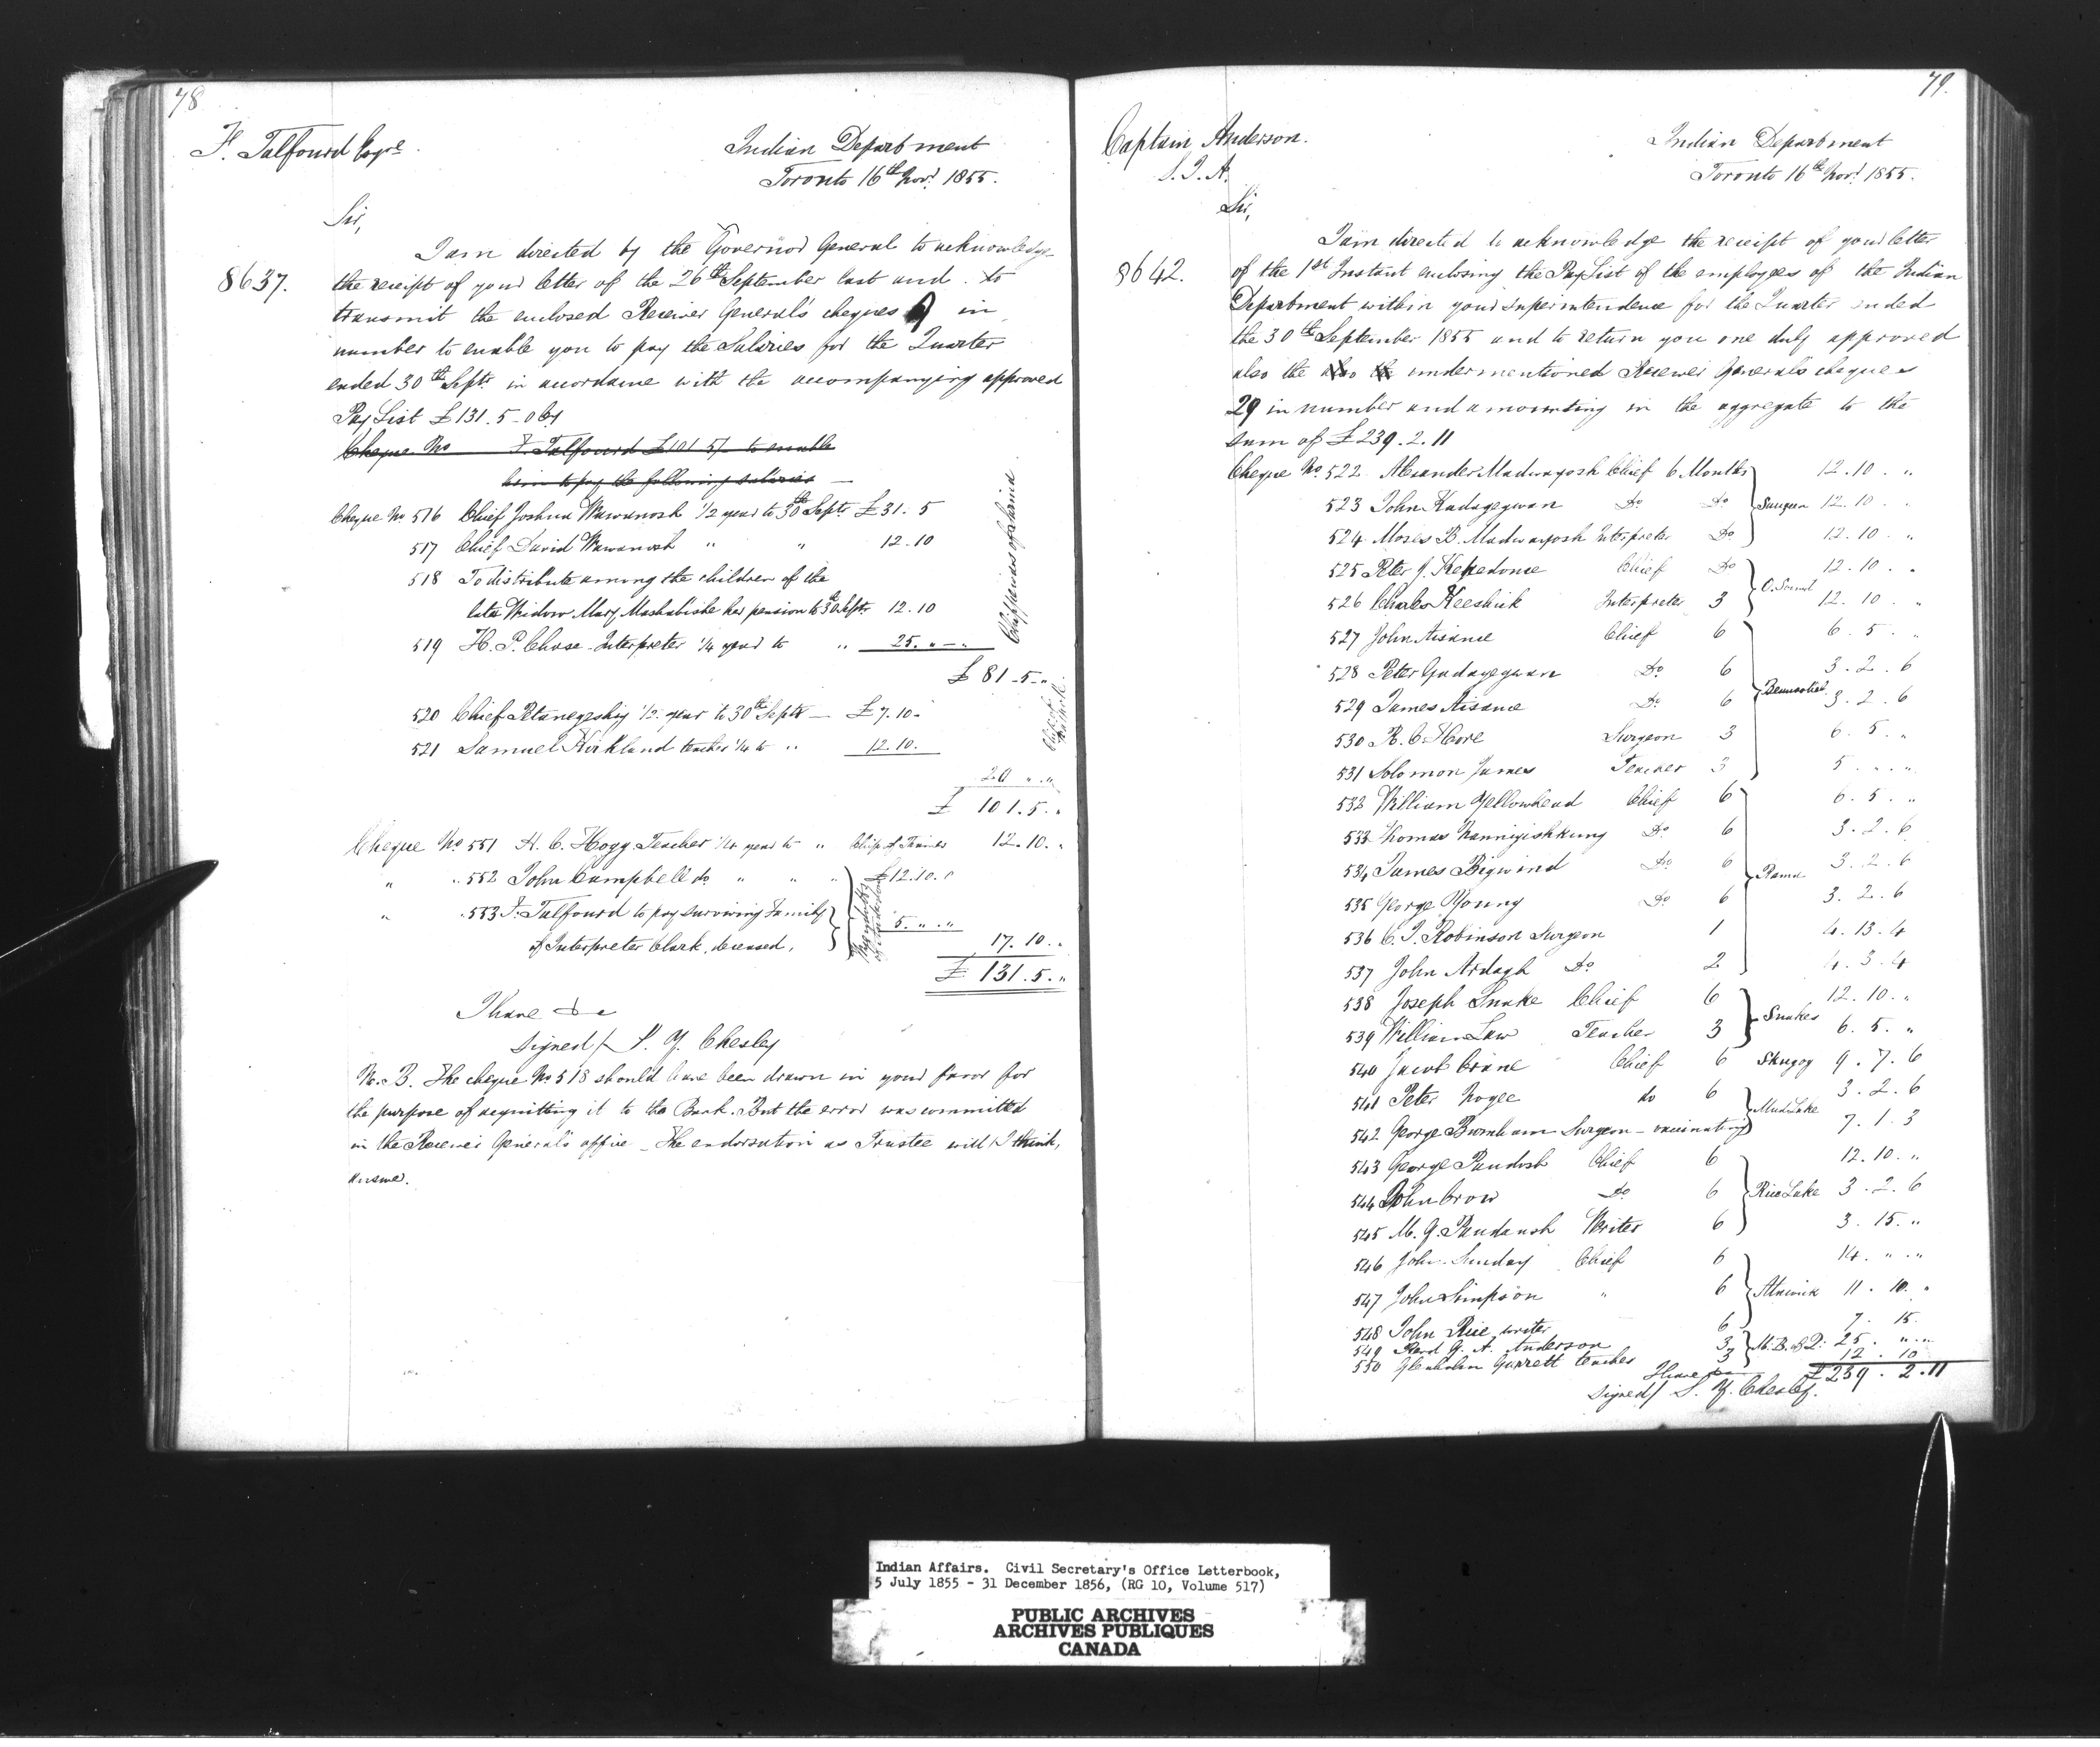 78
F. Talfourd Esqre.
Indian Department
Toronto 16th Novr. 1855.
Sir,
I am directed by the Governor General to acknowledge
8637.
the receipt of your letter of the 26th September last and to
transmit the enclosed Receiver General's cheques 9 in
number to enable you to pay the Salaries for the Quarter
ended 30th Septr. in accordance with the accompanying approved
Pay List £131.5-0
Cheque No F. Talfourd £101 5/- to enable
him to pay the following salaries
Cheque No. 516 Chief Joshua Wawanosh 1/2 year to 30th Septr £31. 5
517 Chief David Wawanosh " " 12.10
518 To distribute among the children of the
late Widow Mary Mashabishe her pension to 30th Septr. 12.10
519 H. P. Chase - Interpreter 1/4 year to " 25. " - "
Chippewas of Sarnia
£ 81-5-"
520 Chief Petanegeshig 1/2 year to 30th Septr — £7.10-
521 Samuel Kirkland teacher 1/4 to " 12.10.
20 " . "
£ 101.5. "
Cheque No 551 A. C. Hogg. Teacher 1/4 year to " Chip. of Thames 12.10. "
" " 552 John Campbell do " " " £12.10.0
" " 553 F. Talfourd to pay surviving Family
of Interpreter Clark, deceased,
5. " . "
17. 10. "
£ 131.5. "
I have &c
Signed/ S. Y. Chesley
N. B. The cheque No 518 should have been drawn in your favor for
the purpose of remitting it to the Bank. But the error was committed
in the Receiver General's office - The endorsation as Trustee will, I think,
answer.
79.
Captain Anderson.
S. I. A.
Indian Department
Toronto 16th Novr. 1855.
Sir,
I am directed to acknowledge the receipt of your letter
8642.
of the 1st Instant enclosing the Pay List of the employees of the Indian
Department within your superintendence for the Quarter ended
the 30th September 1855 and to return you one duly approved
also the also the undermentioned Receiver General's cheques
29 in number and amounting in the aggregate to the
sum of £239.2.11
Cheque No 522 Alexander Madwayosh Chief 6 Months 12.10. "
523 John Kadagegwan Do Do Saugeen 12.10. "
524 Moses B. Madwayosh Interpreter Do 12.10. "
525 Peter J. Kegedonce Chief Do 12.10. "
526 Charles Keeshick Interpreter 3 O. Sound 12.10. "
527 John Aisance Chief 6 6. 5. "
528 Peter Gadagegwan Do 6 3. 2. 6
529 James Aisance Do 6 Beausoliel 3. 2. 6
530 R. C. Hore Surgeon 3 6. 5. "
531 Solomon James Teacher 3 5. " . "
532 William Yellowhead Chief 6 6. 5. "
533 Thomas Nannigishkung Do 6 3. 2. 6
534 James Bigwind Do 6 Rama 3. 2. 6
535 George Young Do 6 3. 2. 6
536 C. I. Robinson Surgeon 1 4. 13. 4
537 John Ardagh Do 2 4. 3. 4
538 Joseph Snake Chief 6 12. 10. "
539 William Law Teacher 3 Snakes 6. 5. "
540 Jacob Crane Chief 6 Skugog 9. 7. 6
541 Peter Nogee do 6 3. 2. 6
542 George Burnham Surgeon - vaccinating Mud Lake 7. 1. 3
543 George Paudosh Chief 6 12. 10. "
544 John Crow Do 6 Rice Lake 3. 2. 6
545 M. G. Paudaush Writer 6 3. 15. "
546 John Sunday Chief 6 14. " . "
547 John Simpson " 6 Alnwick 11. 10. "
548 John Rice writer 6 7. 15.
549 Revd G. A. Anderson 3 M. B. of Q: 25. " . "
550 Garrett teacher 3 12. 10
£239. 2. 11
I have &c
Signed/ S. Y. Chesley.
Indian Affairs. Civil Secretary's Office Letterbook,
5 July 1855 - 31 December 1856, (RG 10, Volume 517)
PUBLIC ARCHIVES
ARCHIVES PUBLIQUES
CANADA